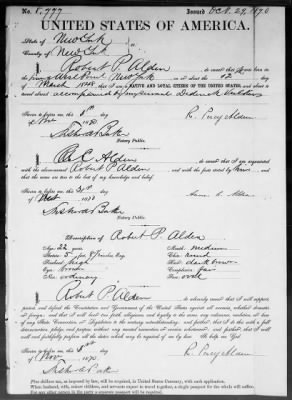 No. 1,777 Issued Oct. 29, 1870
UNITED STATES OF AMERICA.
State of New York
County of New York
I, Robert P. Alden, do swear that I was born in
New York on or about the 12 day
of March 1848 that I am a NATIVE AND LOYAL CITIZEN OF THE UNITED STATES, and about to
travel abroad accompanied by my
Sworn to before me this day R. Percy Alden
of 1870
Notary Public.
Alden do swear that I am acquainted
with the above-named Robert P. Alden and with the facts stated by him and
that the same are true to the best of my knowledge and belief.
Sworn to before me this day
of 1870
Notary Public.
Description of Robert P. Alden
Age: 22 years Mouth: medium
Stature: 5 feet 8 inches, Eng. Chin: round
Forehead: high Hair: dark brown
Eyes: Complexion: fair
Nose: ordinary Face: oval
I, Robert P. Alden do solemnly swear that I will support,
protect, and defend the Constitution and Government of the United States against all enemies, whether domestic
or foreign; and that I will bear true faith, allegiance and loyalty to the same, any ordinance, resolution, or law
of any State Convention or Legislature to the contrary notwithstanding; and further, that I do this with a full
determination, pledge, and purpose without any mental reservation or evasion whatsoever; and further, that I will
well and faithfully perform all the duties which may be required of me by law. So help me God.
Sworn to before me this day R. Percy Alden
of 1870
dollars tax, as imposed by law, will be required, in United States Currency, with each application.
When husband, wife, minor children, and servants expect to travel together, a single passport for the whole will suffice.
For any other person in the party a separate passport will be required.